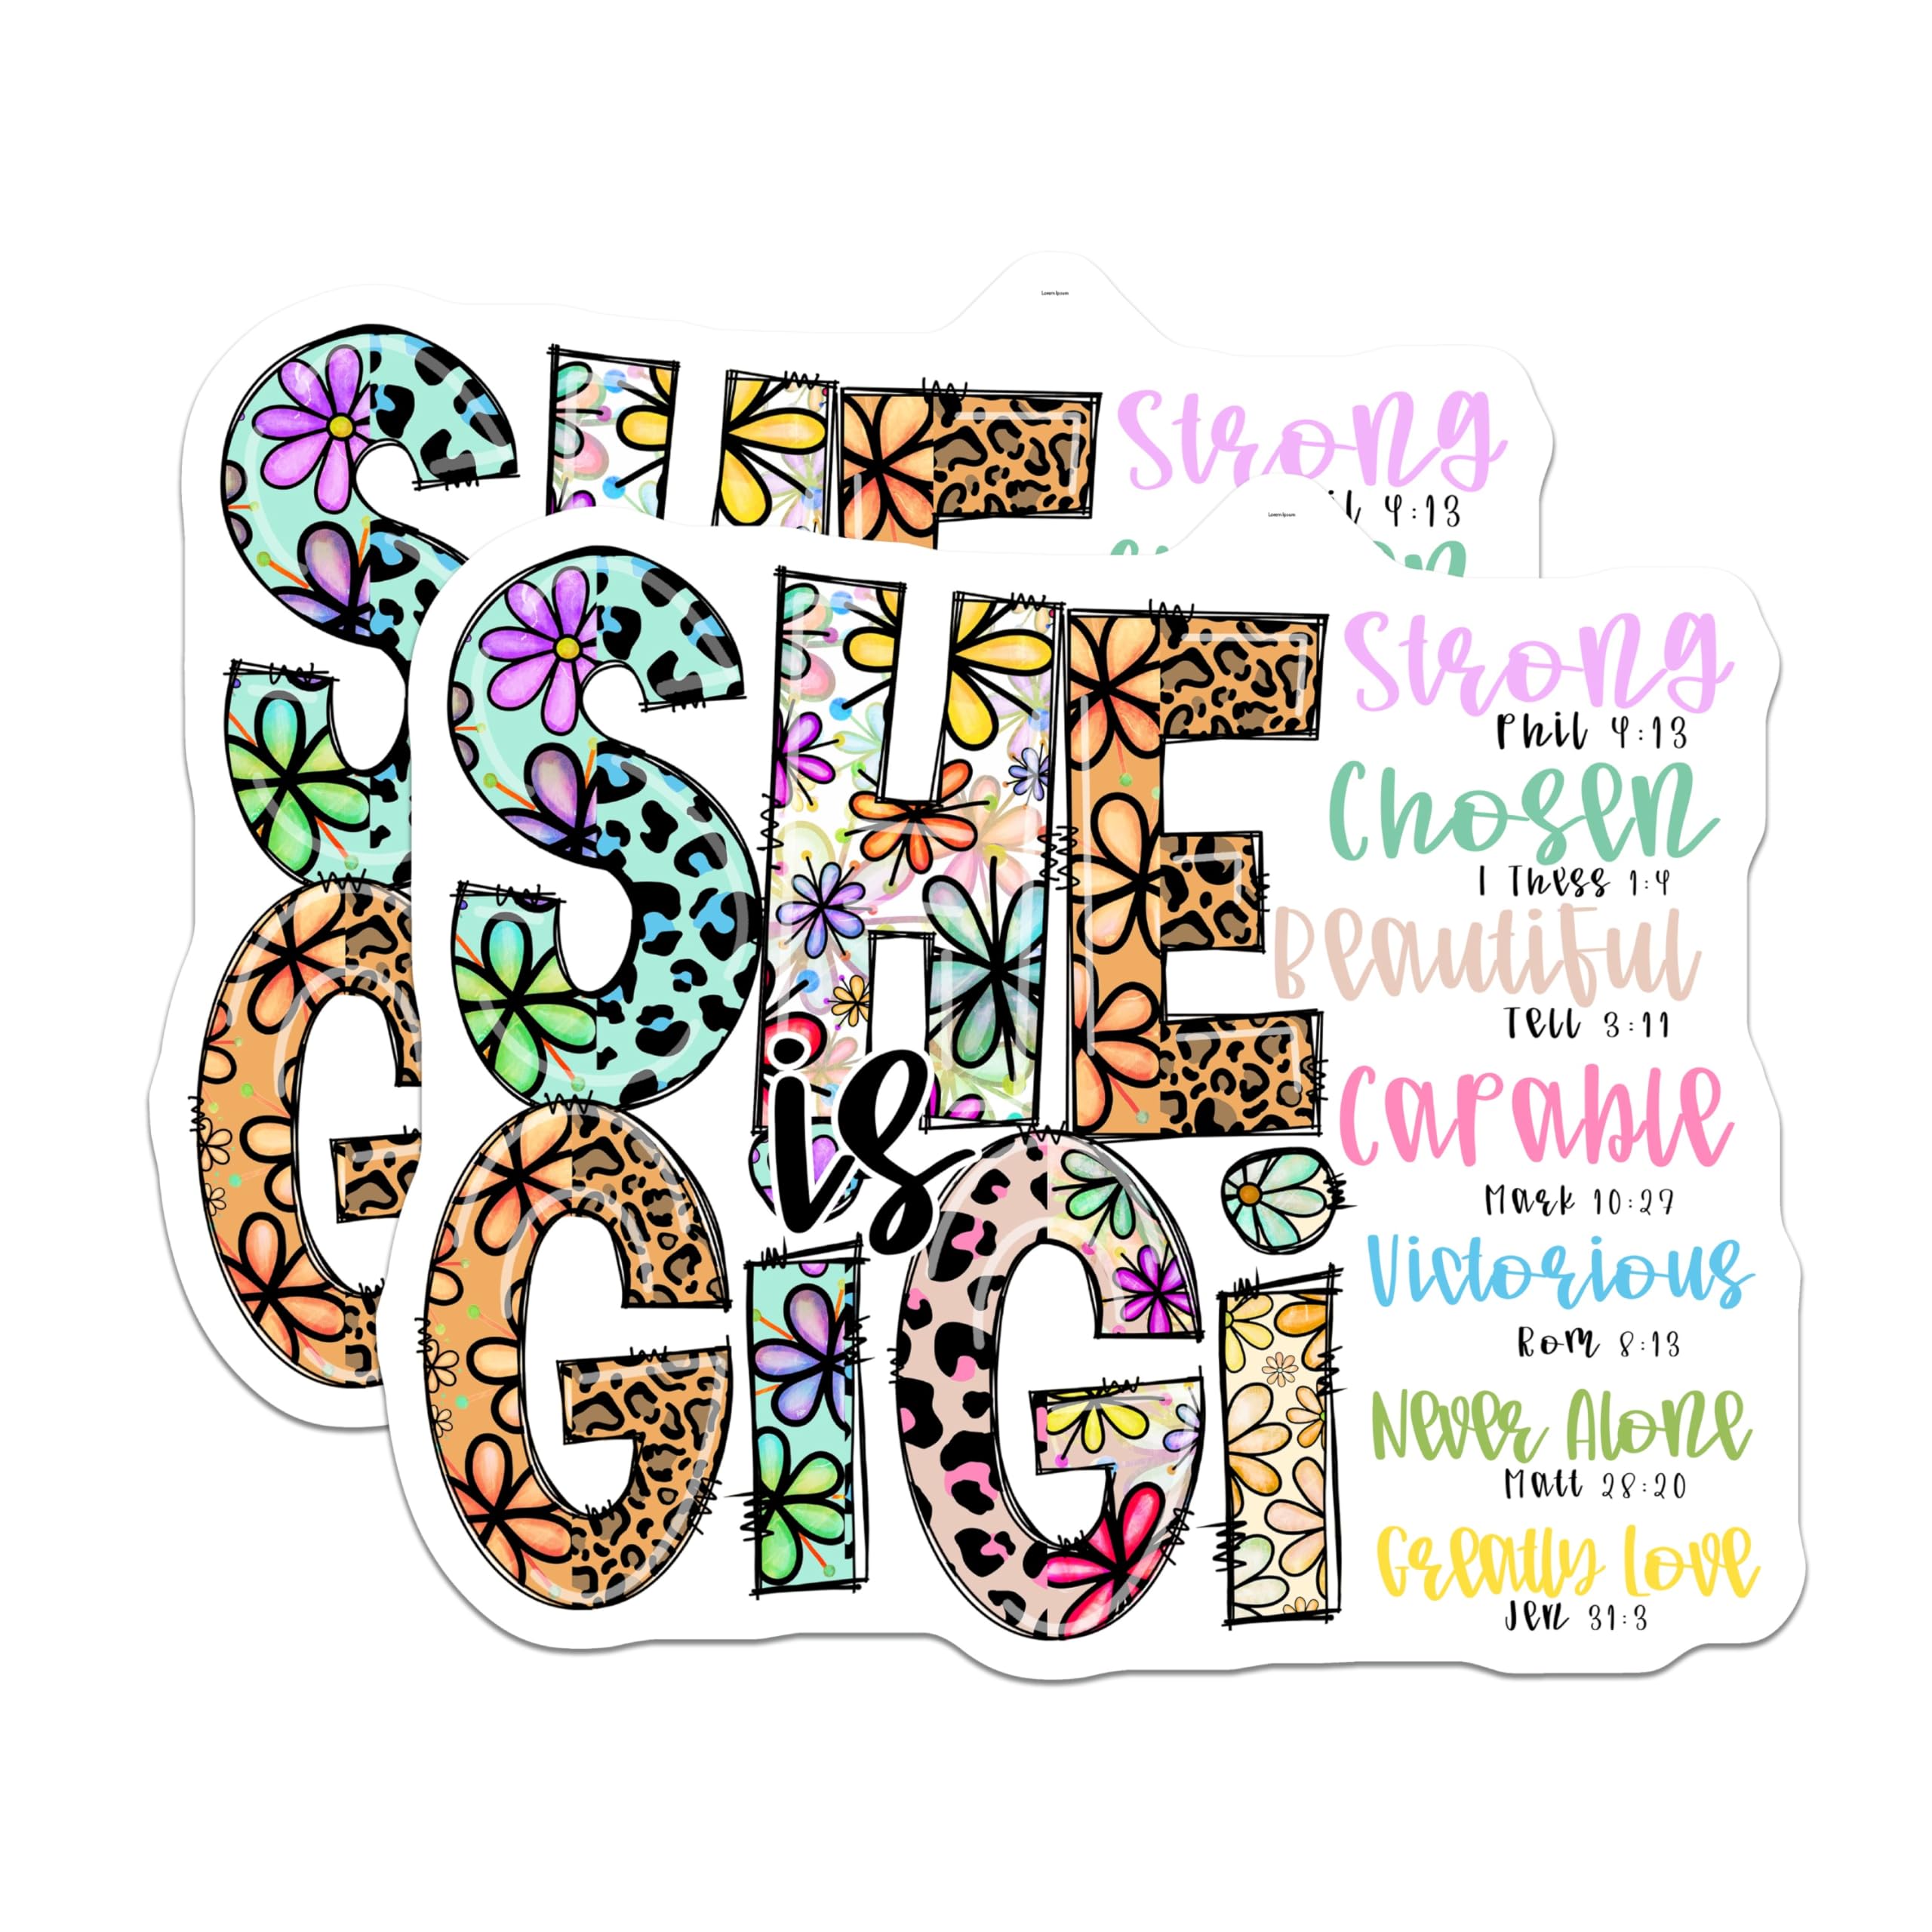 Lorem Ipsum
SHE
Strong
4:13
Lorem Ipsum
SHE
is
GiGi
Strong
Phil 4:13
Chosen
1 Thess 1:4
Beautiful
Tell 3:11
Capable
Mark 10:27
Victorious
Rom 8:13
Never Alone
Matt 28:20
Greatly Love
Jer 31:3